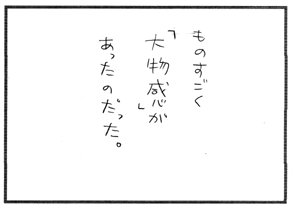 ものすごく
「大物感」が
あったのだった。